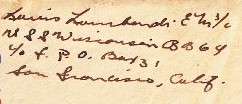 Louis Lombardi EM3/c
U S S Wisconsin BB64
c/o F. P. O. Box 3,
San Francisco, Calif.